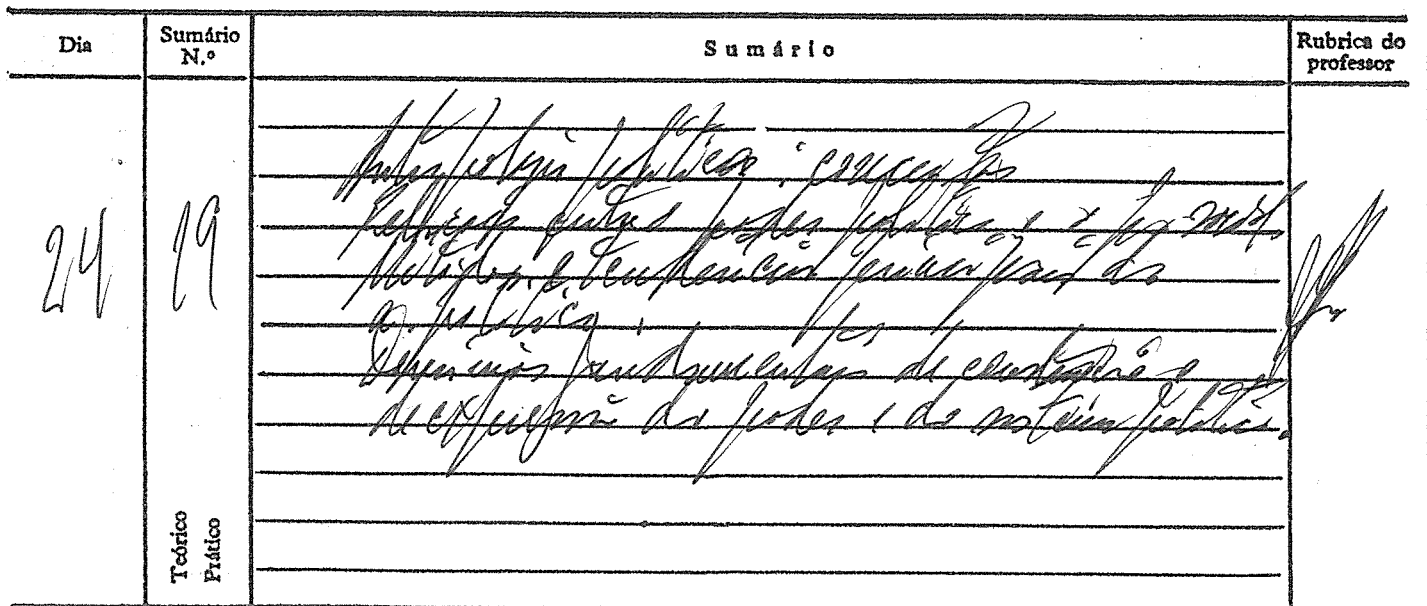 Dia
Sumário N.º
Sumário
Rubrica do professor
24
19
Antropologia política: conceitos
Relações entre poder político e
e tendências principais da
a. política.
Domínios fundamentais de constituição e
de expressão do poder e do sistema político.
Teórico
Prático